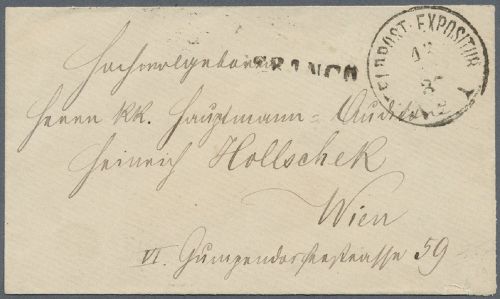 FELDPOST-EXPOSITUR
FRANCO
Hochwolgeboren
Herrn kk. Hauptmann-Auditor
Heinrich Hollschek
Wien
VI. Gumpendorferstrasse 59